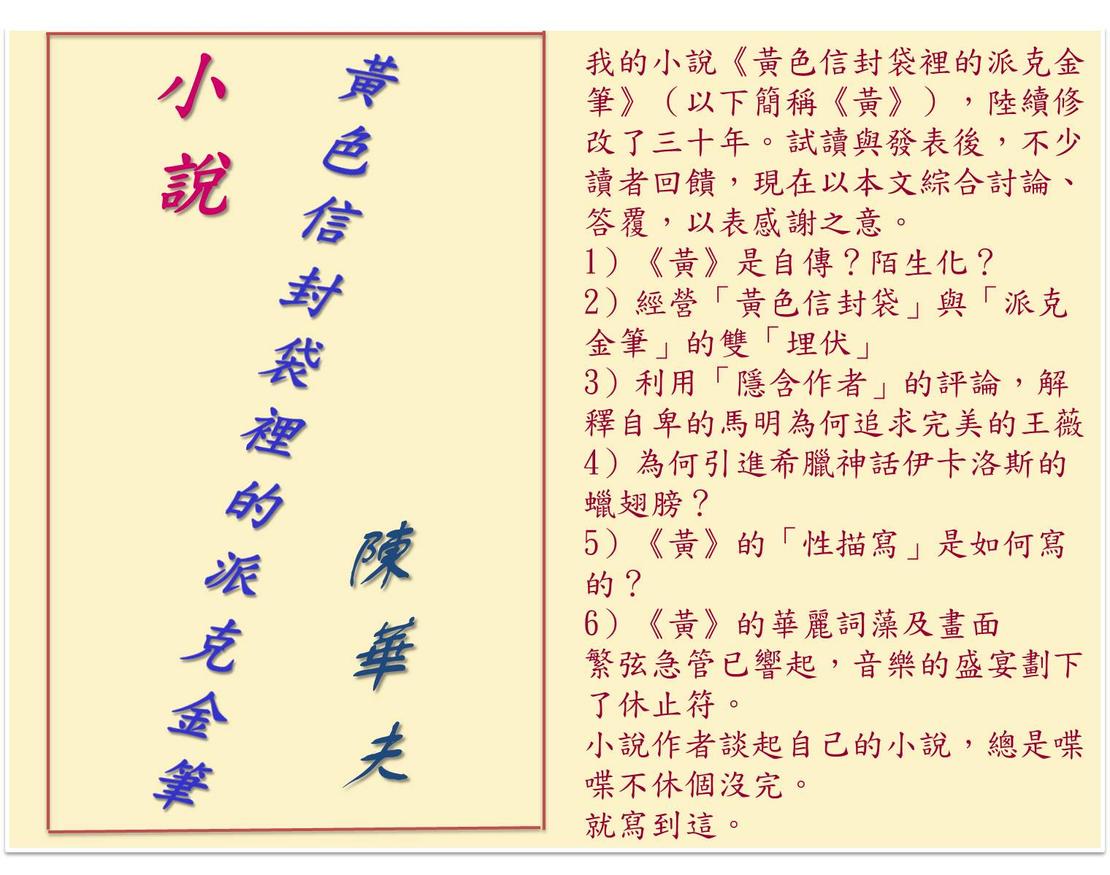 小說
黃色信封袋裡的派克金筆
陳華夫
我的小說《黃色信封袋裡的派克金
筆》（以下簡稱《黃》），陸續修
改了三十年。試讀與發表後，不少
讀者回饋，現在以本文綜合討論、
答覆，以表感謝之意。
1）《黃》是自傳？陌生化？
2）經營「黃色信封袋」與「派克
金筆」的雙「埋伏」
3）利用「隱含作者」的評論，解
釋自卑的馬明為何追求完美的王薇
4）為何引進希臘神話伊卡洛斯的
蠟翅膀？
5）《黃》的「性描寫」是如何寫
的？
6）《黃》的華麗詞藻及畫面
繁弦急管已響起，音樂的盛宴劃下
了休止符。
小說作者談起自己的小說，總是喋
喋不休個沒完。
就寫到這。